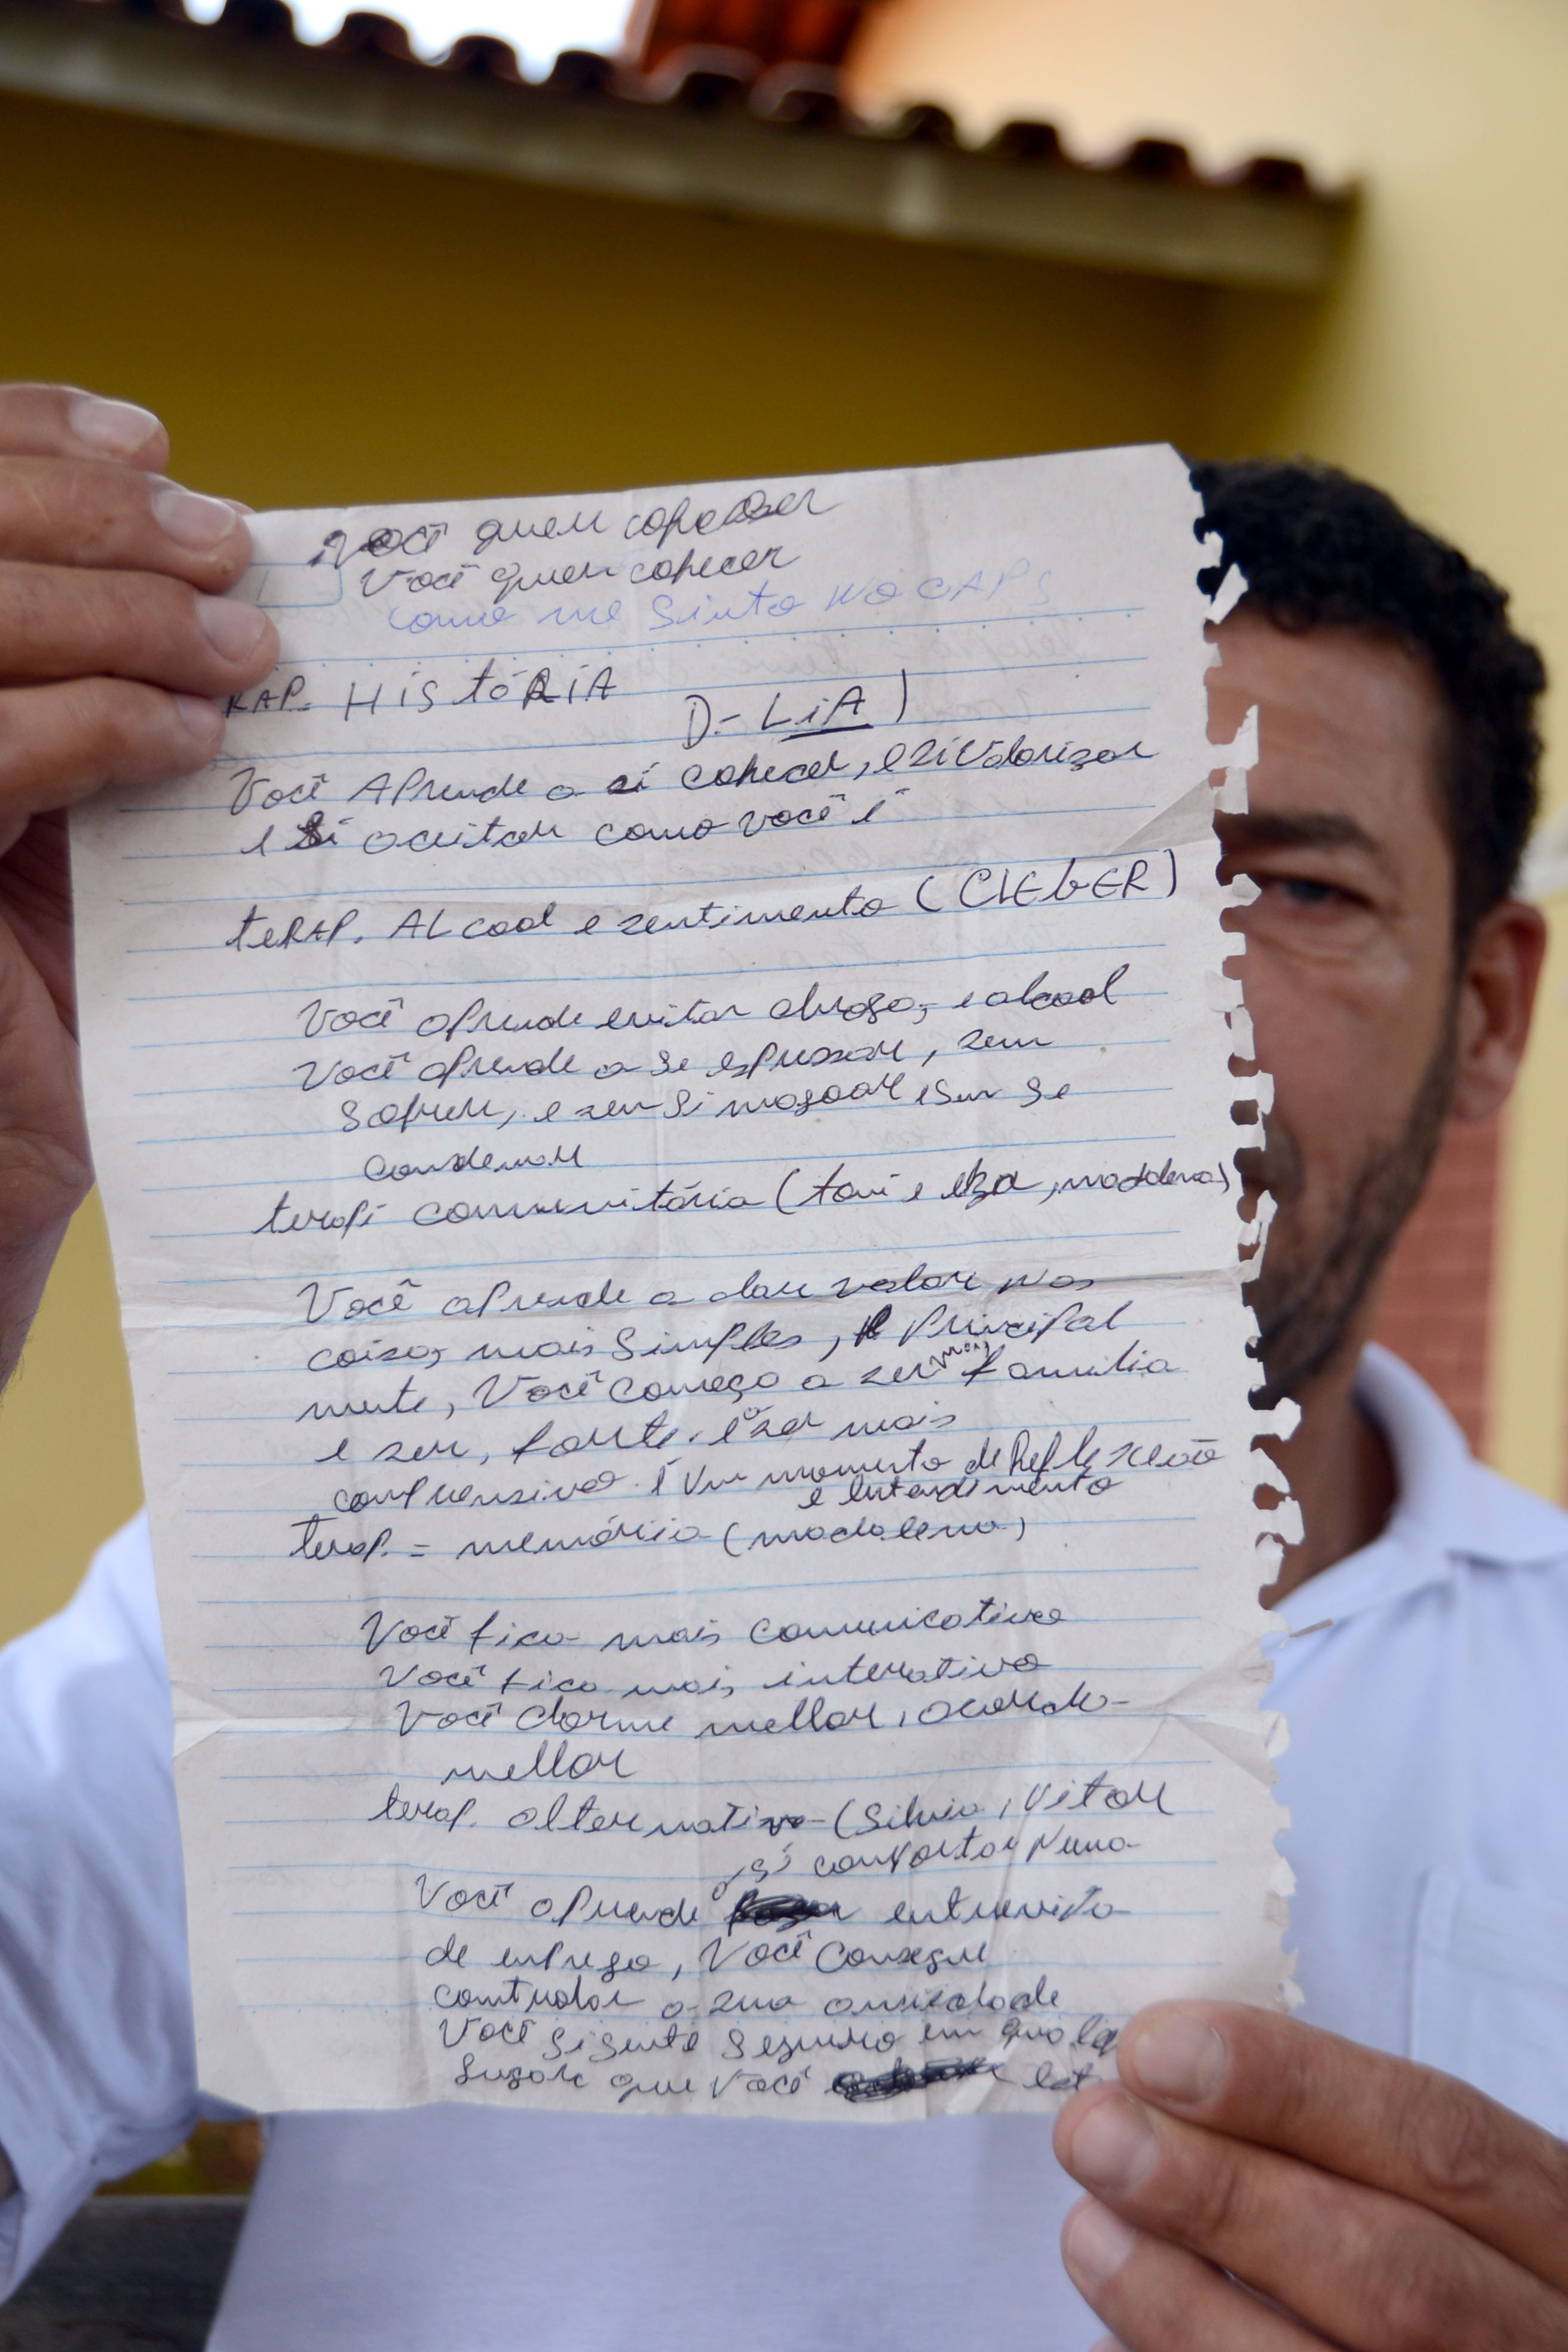 Você quer coheser
Você quer cohecer
como me sinto no CAPS
RAP. HistÓRiA
D.- LiA)
Você APrende a si cohecer, e si valorizar
e si aceitar como você é
teRAP. ALcool e sentimento (CLEbER)
Você aprende evitar droga, e alcool
Você aprende a se espressar, sem
Sofrer, e sem si magoar e sem se
condenar
terapi comunitária (toni e elza, madalena)
Você aprende a dar valor nas
coisas mais simples, e Principal
mente, Você começa a ser mais familia
e ser, forte. e ser mais
comprensivo. é um momento de Reflexão
e entendimento
terap. = memória (madalena)
Você fica mais comunicativo
Você fica mais interativo
Você dorme mellor, acorda
mellor
terap. alternativa (Silvia, Vitor
a si comportar numa
Você aprende entrevista
de emprego, Você consegue
controlar a sua ansiedade
Você si sente seguro em qualq
lugar que Você